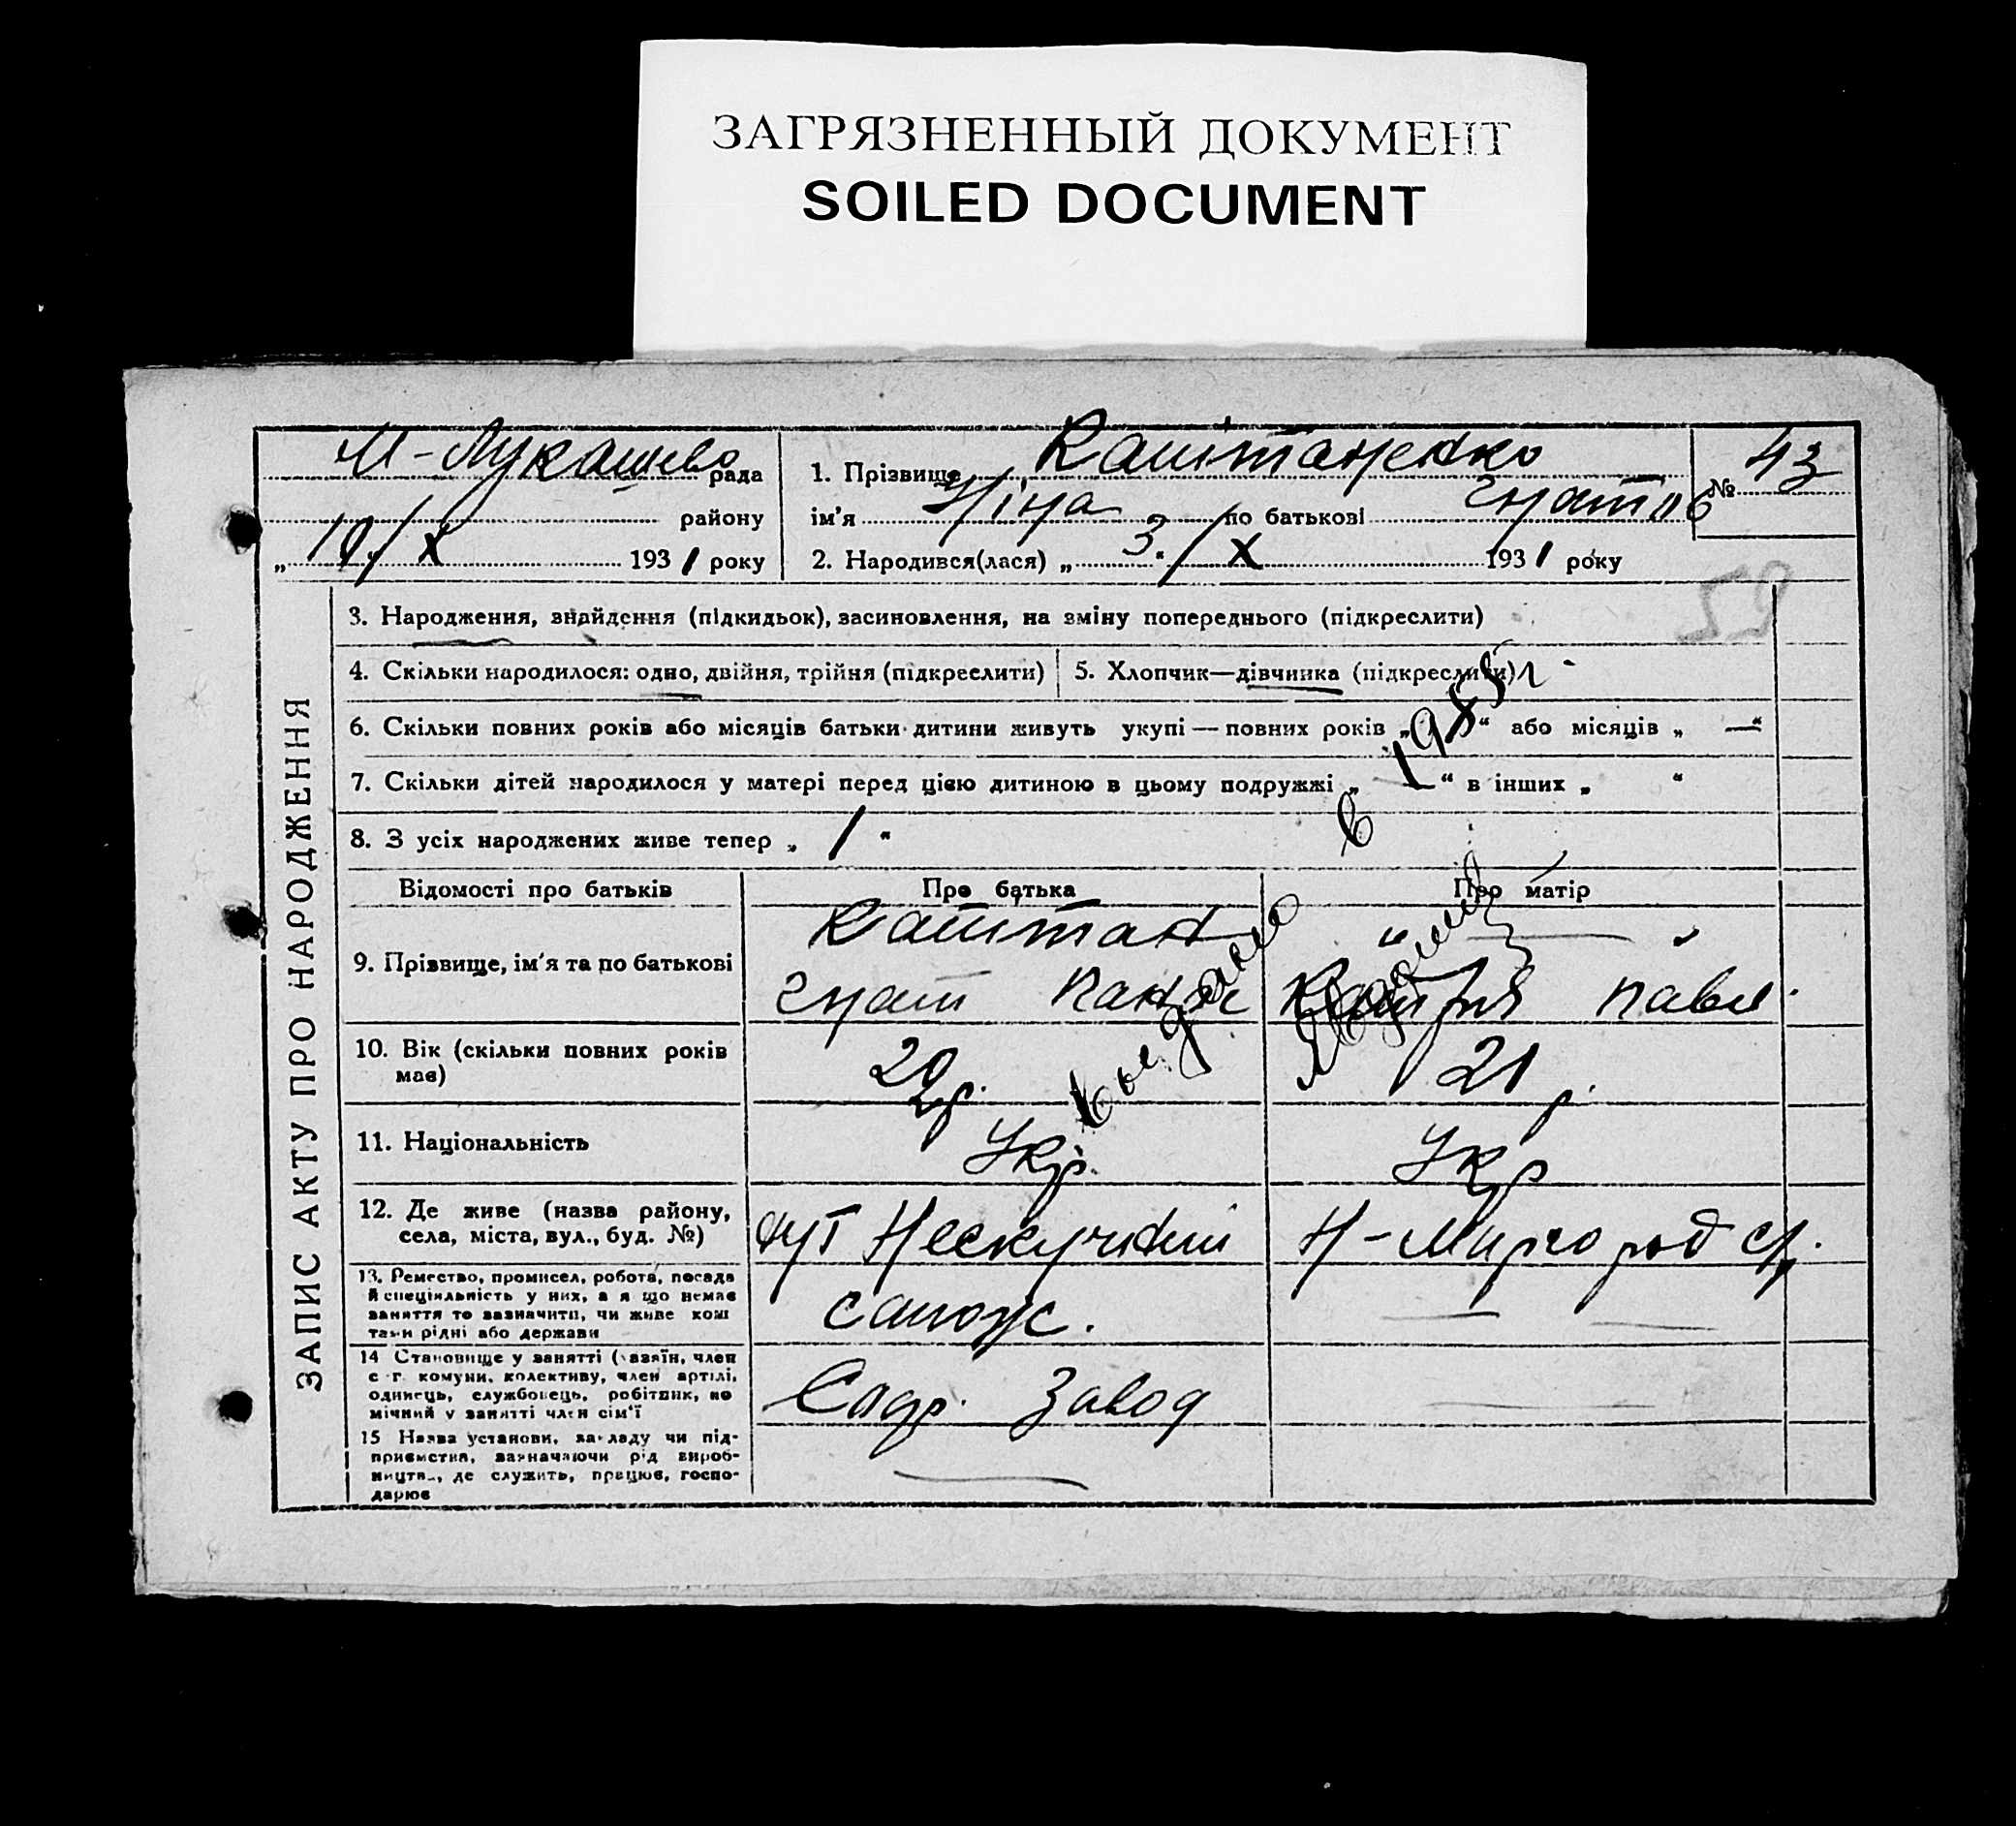 ЗАГРЯЗНЕННЫЙ ДОКУМЕНТ
SOILED DOCUMENT
М-Лукашево рада
району
„10/X 1931 року
1. Прізвище Каштаненко
ім'я Ніна по батькові Гнатів
2. Народився(лася) „3“/X 1931 року
№ 43
ЗАПИС АКТУ ПРО НАРОДЖЕННЯ
3. Народження, знайдення (підкидьок), засиновлення, на зміну попереднього (підкреслити)
4. Скільки народилося: одно, двійня, трійня (підкреслити)
5. Хлопчик—дівчинка (підкреслити)
6. Скільки повних років або місяців батьки дитини живуть укупі — повних років „ “ або місяців „ — “
7. Скільки дітей народилося у матері перед цією дитиною в цьому подружжі „ — “ в інших „ “
8. З усіх народжених живе тепер „ 1 “
Відомості про батьків
Про батька
Про матір
9. Прізвище, ім'я та по батькові
Каштан
Гнат Панас
" — "
Павл.
10. Вік (скільки повних років має)
20 р.
21 р.
11. Національність
Укр.
Укр
12. Де живе (назва району, села, міста, вул., буд. №)
Нескучний
Н-Миргород
13. Ремество, промисел, робота, посада й спеціяльність у них, а я що немає заняття то зазначити, чи живе кош тами рідні або держави
сапож.
14 Становище у занятті (хазяїн, член с.-г. комуни, колективу, член артілі, одинець, службовець, робітник, по мічний у занятті член сім'ї
Завод
15 Назва установи, закладу чи підприємства, зазначаючи рід виробництва, де служить, працює, господарює